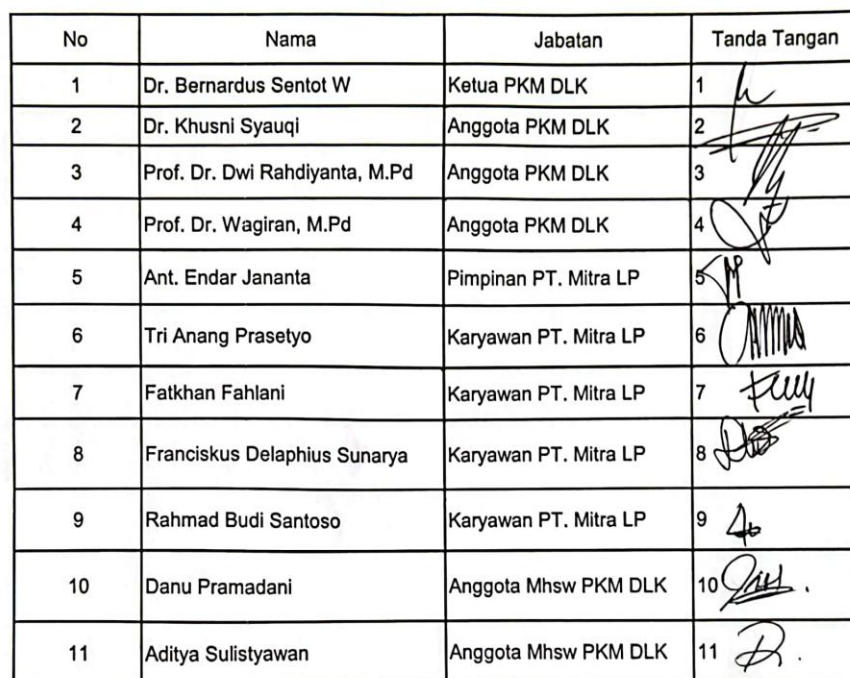 No Nama Jabatan Tanda Tangan
1 Dr. Bernardus Sentot W Ketua PKM DLK 1
2 Dr. Khusni Syauqi Anggota PKM DLK 2
3 Prof. Dr. Dwi Rahdiyanta, M.Pd Anggota PKM DLK 3
4 Prof. Dr. Wagiran, M.Pd Anggota PKM DLK 4
5 Ant. Endar Jananta Pimpinan PT. Mitra LP 5
6 Tri Anang Prasetyo Karyawan PT. Mitra LP 6
7 Fatkhan Fahlani Karyawan PT. Mitra LP 7
8 Franciskus Delaphius Sunarya Karyawan PT. Mitra LP 8
9 Rahmad Budi Santoso Karyawan PT. Mitra LP 9
10 Danu Pramadani Anggota Mhsw PKM DLK 10
11 Aditya Sulistyawan Anggota Mhsw PKM DLK 11